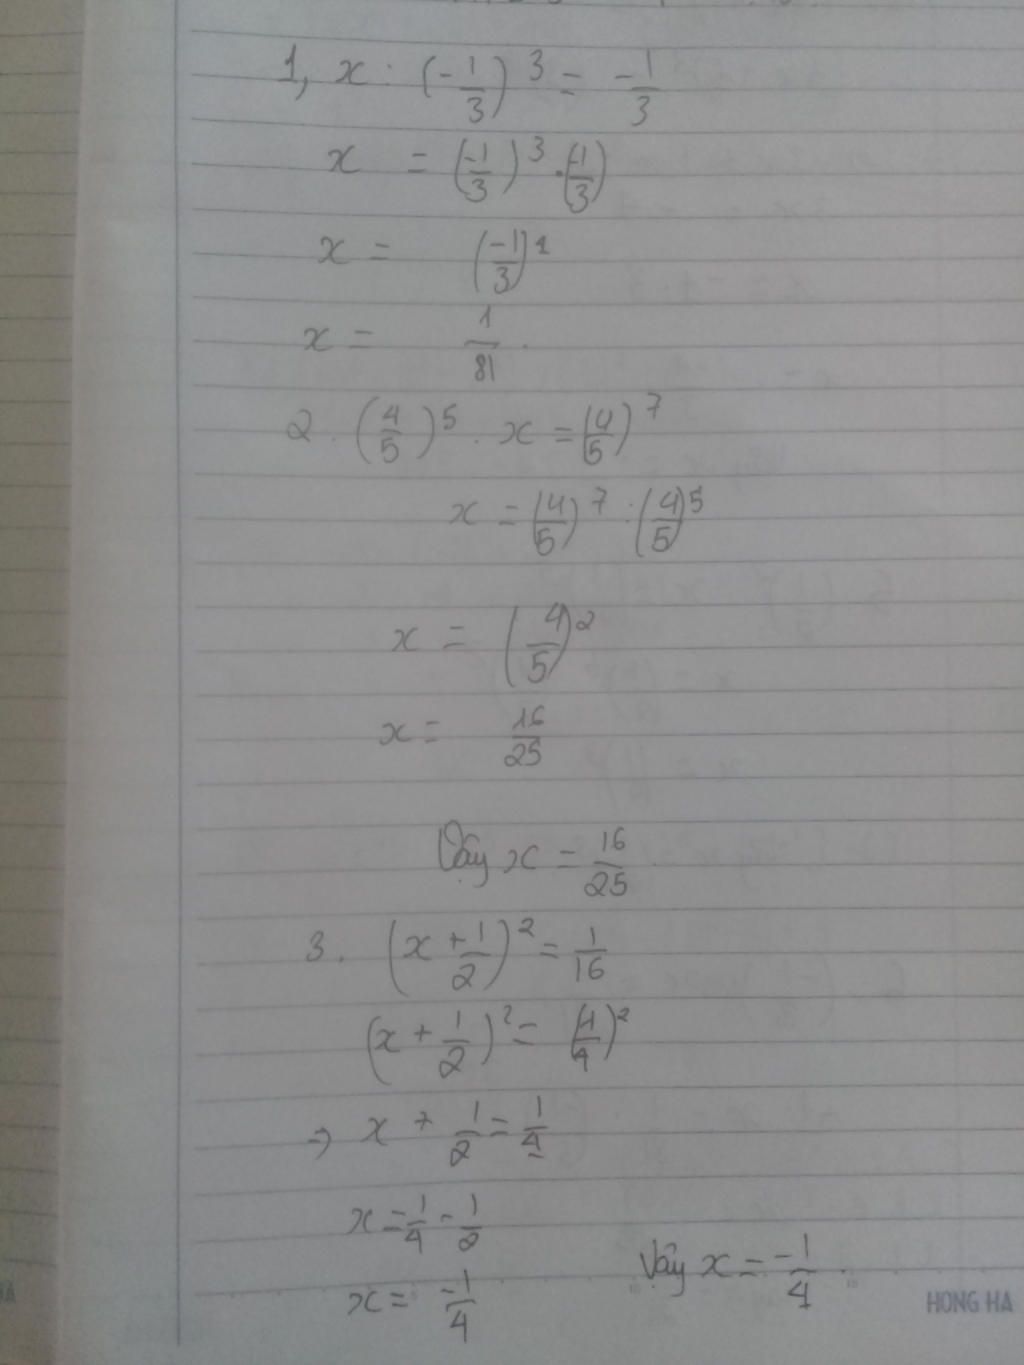 1, x : (-1/3)^3 = -1/3
x = (-1/3)^3 . (-1/3)
x = (-1/3)^4
x = 1/81 .
2. (4/5)^5 . x = (4/5)^7
x = (4/5)^7 : (4/5)^5
x = (4/5)^2
x = 16/25
Vậy x = 16/25
3. (x + 1/2)^2 = 1/16
(x + 1/2)^2 = (1/4)^2
→ x + 1/2 = 1/4
x = 1/4 - 1/2
x = -1/4
Vậy x = -1/4 .
HONG HA